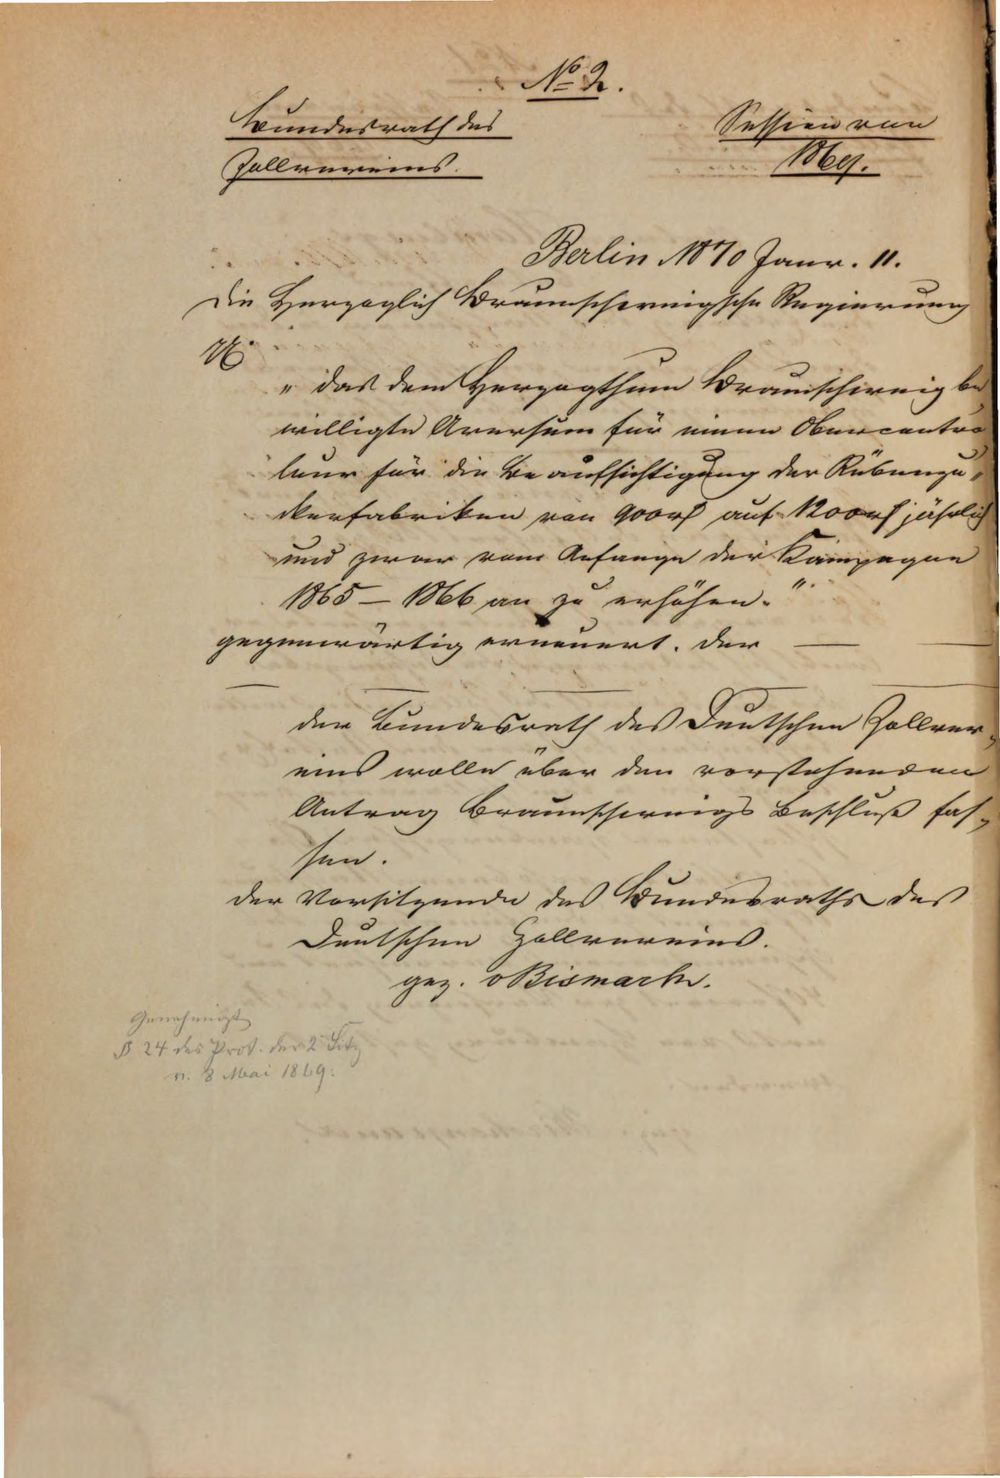 No 2.
Bundesrath des
Zollvereins.
Session von
1869.
Berlin 1870 Janr. 11.
Die Herzoglich Braunschweigsche Regierung
„ das dem Herzogthum Braunschweig be„
willigte Aversum für einen Obercontro
leur für die Beaufsichtigung der Rübenzu„
ckerfabriken von 900 rf auf 1200 rf jährlich
und zwar vom Anfange der Kampagne
1865 – 1866 an zu erhöhen. “
gegenwärtig erneuert. Der — —
— — — — —
der Bundesrath des Deutschen Zollver„
eins wolle über den vorstehenden
Antrag Braunschweigs Beschluß fas„
sen.
Der Vorsitzende des Bundesraths des
Deutschen Zollvereins.
gez. v Bismark.
Genehmigt
§ 24 des Prot. der 2 Sitz
v. 8 Mai 1869.